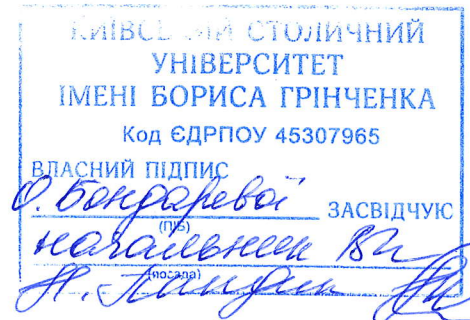 КИЇВСЬКИЙ СТОЛИЧНИЙ
УНІВЕРСИТЕТ
ІМЕНІ БОРИСА ГРІНЧЕНКА
Код ЄДРПОУ 45307965
ВЛАСНИЙ ПІДПИС
О. Бондаревої ЗАСВІДЧУЮ
(ПІБ)
начальник
(посада)
Н.